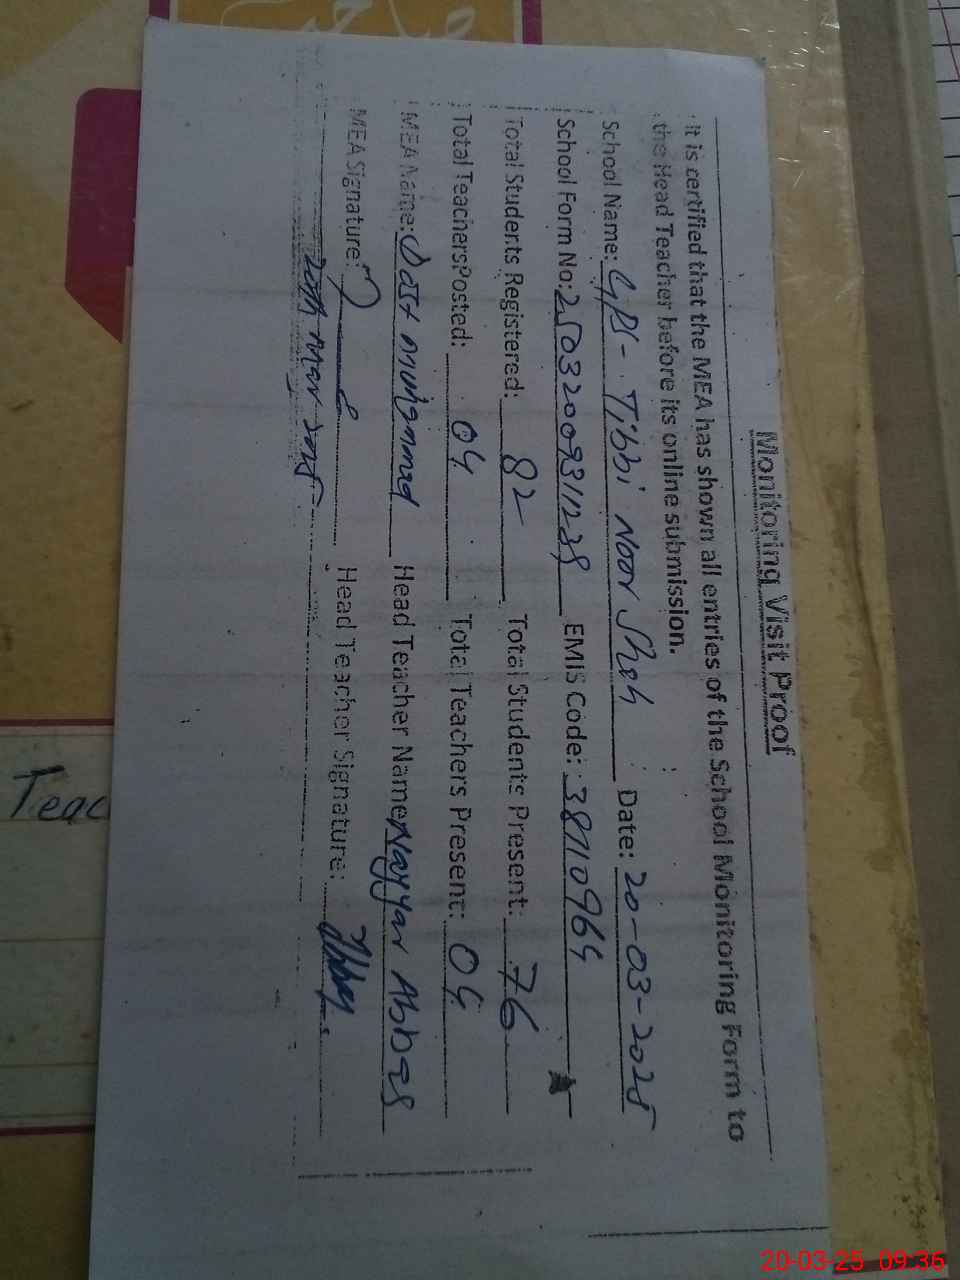 Monitoring Visit Proof
It is certified that the MEA has shown all entries of the School Monitoring Form to
the Head Teacher before its online submission.
School Name: GPS - Tibbi Noor Shah Date: 20-03-2025
School Form No: 2503200931128 EMIS Code: 38110964
Total Students Registered: 82 Total Students Present: 76
Total Teachers Posted: 04 Total Teachers Present: 04
MEA Name: Dost Muhammad Head Teacher Name Nayyar Abbas
MEA Signature: Head Teacher Signature:
Teac
20-03-25 09:36